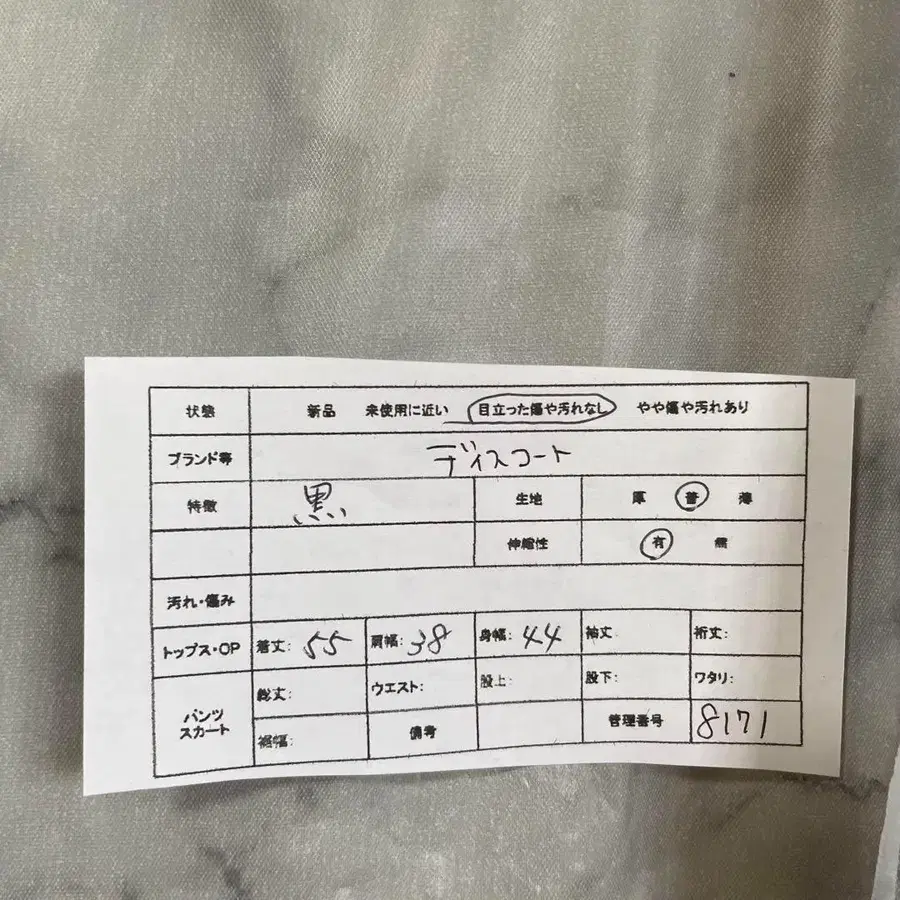 状態 新品 未使用に近い 目立った傷や汚れなし やや傷や汚れあり
ブランド等 ディスコート
特徴 黒 生地 厚 普 薄
伸縮性 有 無
汚れ・傷み
トップス・OP 着丈: 55 肩幅: 38 身幅: 44 袖丈: 裄丈:
パンツ スカート 総丈: ウエスト: 股上: 股下: ワタリ:
裾幅: 備考 管理番号 8171